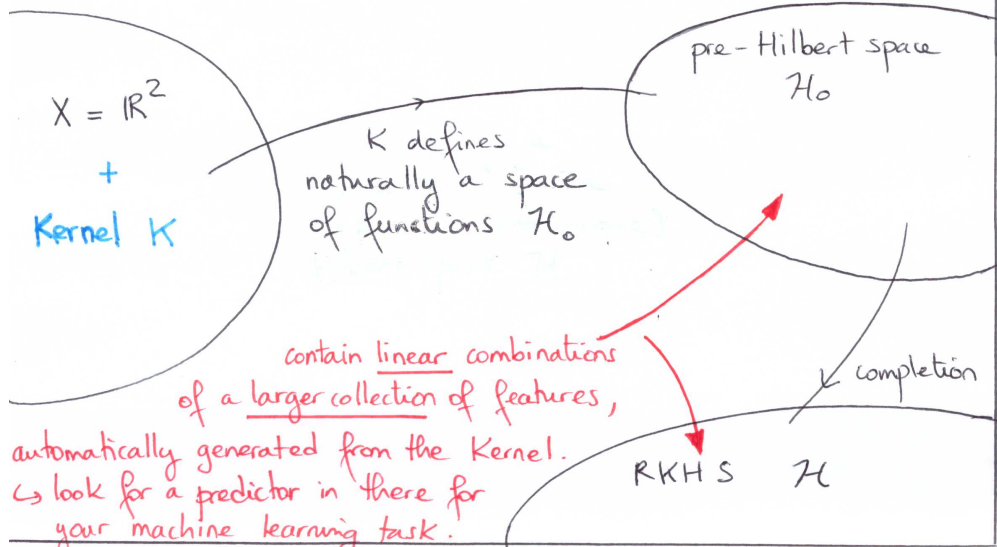 X = ℝ²
+
Kernel K
K defines
naturally a space
of functions ℋ₀
pre-Hilbert space
ℋ₀
contain linear combinations
of a larger collection of features,
automatically generated from the Kernel.
↳ look for a predictor in there for
your machine learning task.
completion
RKHS ℋ